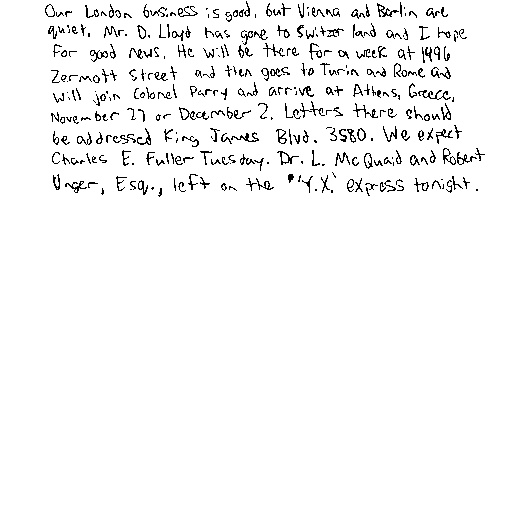 Our London business is good, but Vienna and Berlin are
quiet. Mr. D. Lloyd has gone to Switzer land and I hope
for good news. He will be there for a week at 1496
Zermott Street and then goes to Turin and Rome and
will join Colonel Parry and arrive at Athens, Greece,
November 27 or December 2. Letters there should
be addressed King James Blvd. 3580. We expect
Charles E. Fuller Tuesday. Dr. L. McQuaid and Robert
Unger, Esq., left on the "Y.X.' express tonight.